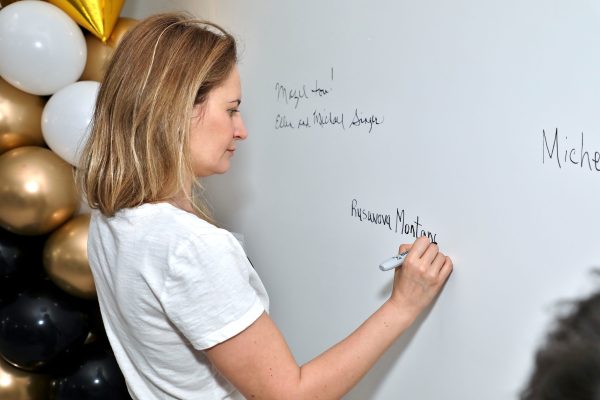 Mazel tov!
Ellen and Michael Singer
Miche
Rusanova Montan